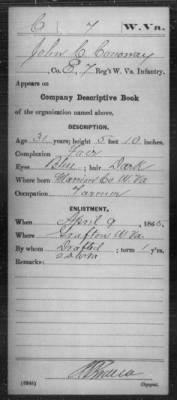 C 7 W.Va.
John C Conoway
Co. E, 7 Reg't W. Va. Infantry.
Appears on
Company Descriptive Book
of the organization named above.
DESCRIPTION.
Age 31 years; height 5 feet 10 inches.
Complexion Fair
Eyes Blue; hair Dark
Where born Marion Co W.Va
Occupation Farmer
ENLISTMENT.
When April 9, 1865.
Where Grafton W Va
By whom Drafted; term 1 y'rs.
Remarks:
Copyist.